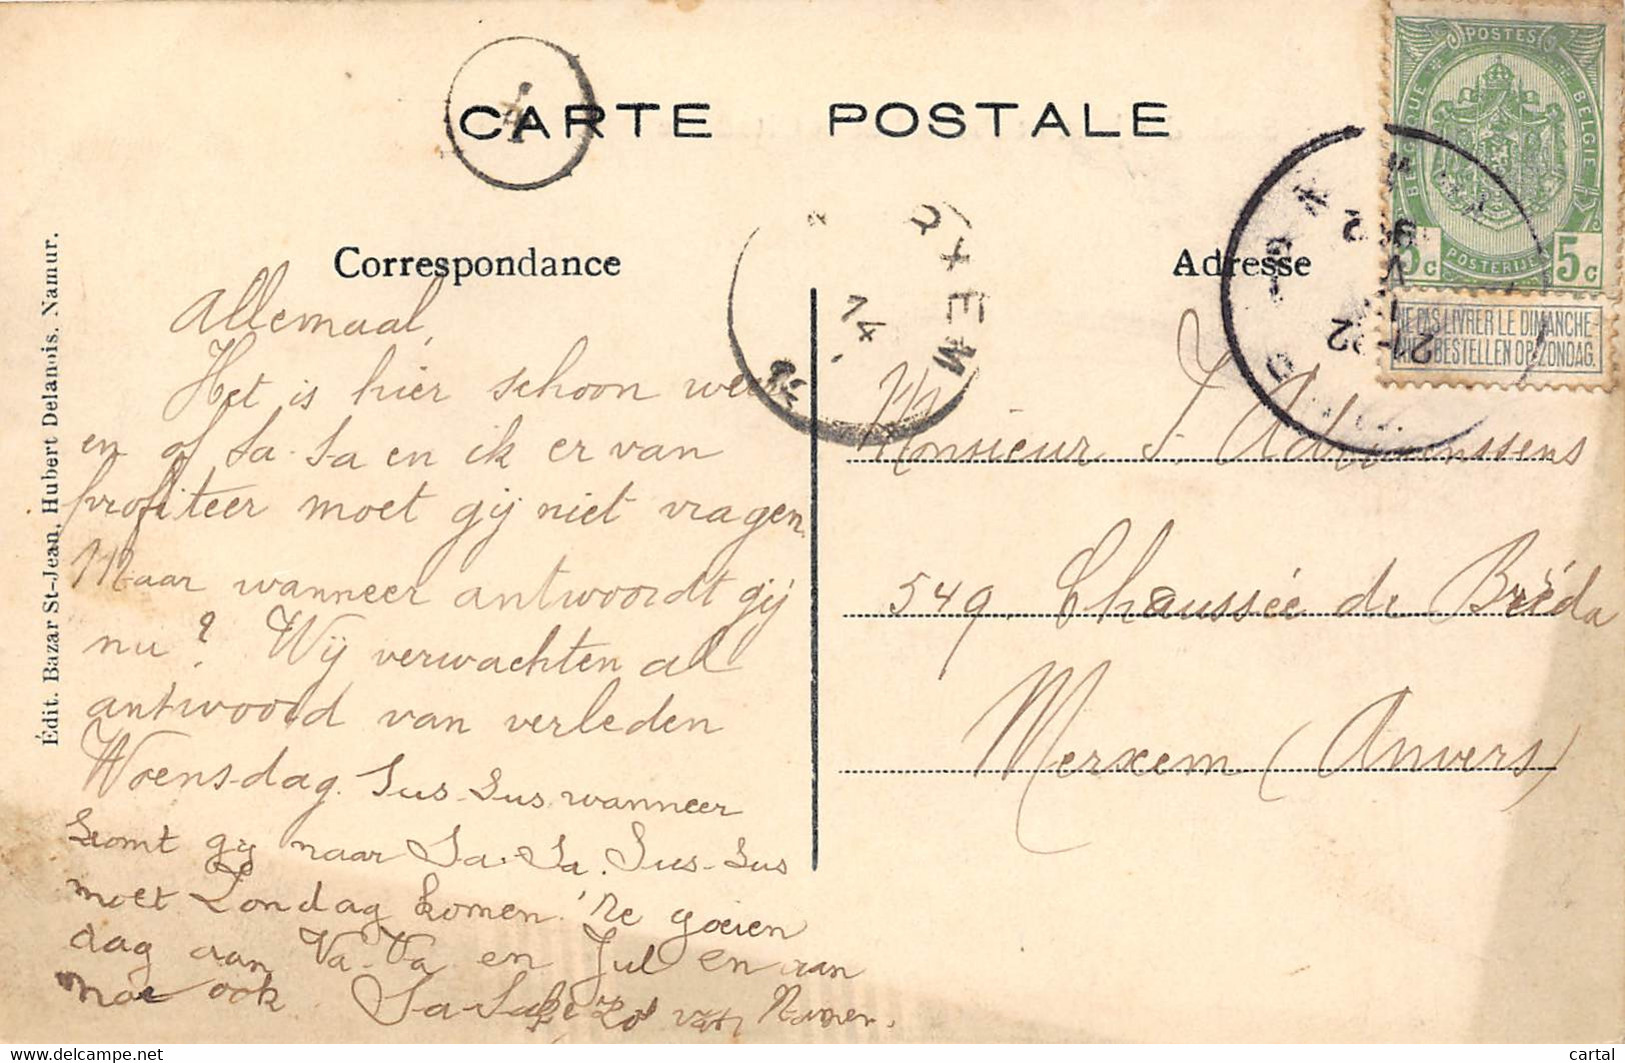 CARTE POSTALE
Correspondance
Adresse
Édit. Bazar St-Jean, Hubert Delanois. Namur.
POSTES
BELGIQUE
BELGIE
POSTERIJEN
5c 5c
NE PAS LIVRER LE DIMANCHE
NIET BESTELLEN OP ZONDAG.
21-22
RXEM
14
Allemaal,
Het is hier schoon weer
en of Sa-Sa en ik er van
profiteer moet gij niet vragen
Maar wanneer antwoordt gij
nu? Wij verwachten al
antwoord van verleden
Woensdag. Sus-Sus wanneer
komt gij naar Sa-Sa. Sus-Sus
moet Zondag komen. 'Ne goeien
dag aan Va-Va en Jul en aan
moe ook. Sa-Sa van Namen.
Monsieur J. Adriaenssens
549. Chaussée de Bréda
Merxem (Anvers)
cartal
delcampe.net